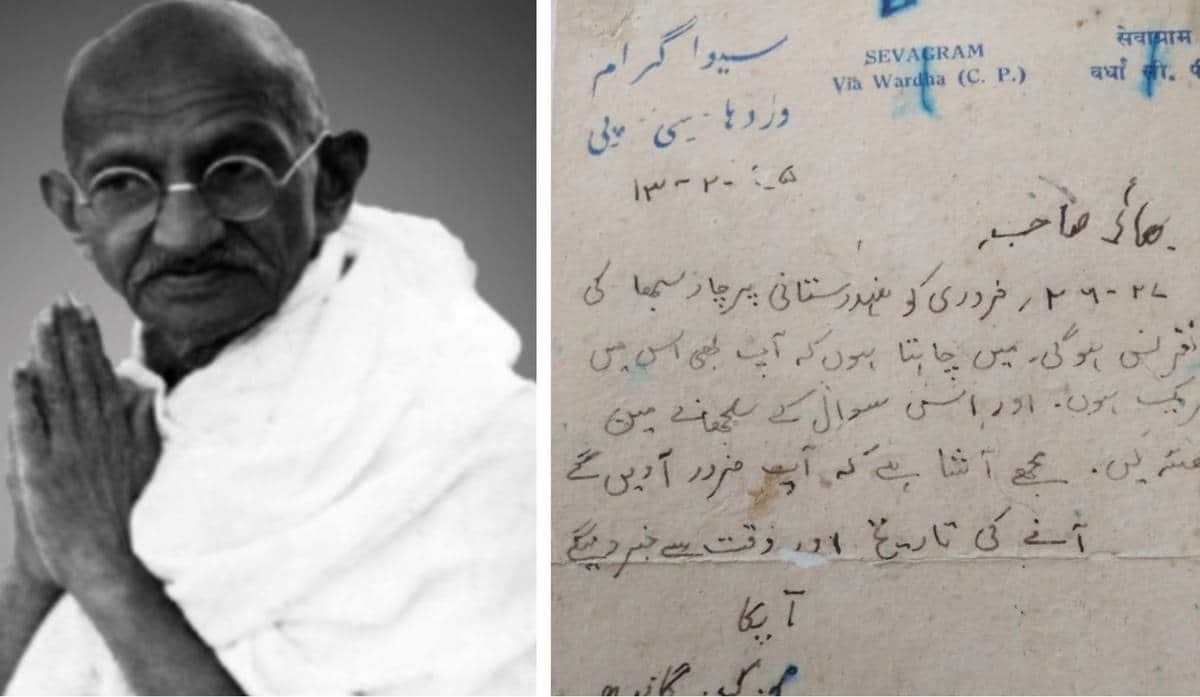 سیوا گرام
SEVAGRAM
सेवाग्राम
وردہا سی پی
Via Wardha (C. P.)
वर्धा सी. पी
۱۳-۲-۴۵
بھائی صاحب
۲۶-۲۷ فروری کو ہندوستانی پرچار سبھا کی
ہوگی۔ میں چاہتا ہوں کہ آپ بھی اس میں
ہوں۔ اور اس سوال کے سلجھانے میں
لیں۔ مجھے آشا ہے کہ آپ ضرور آویں گے
آنے کی تاریخ اور وقت سے خبر دینگے
آپکا